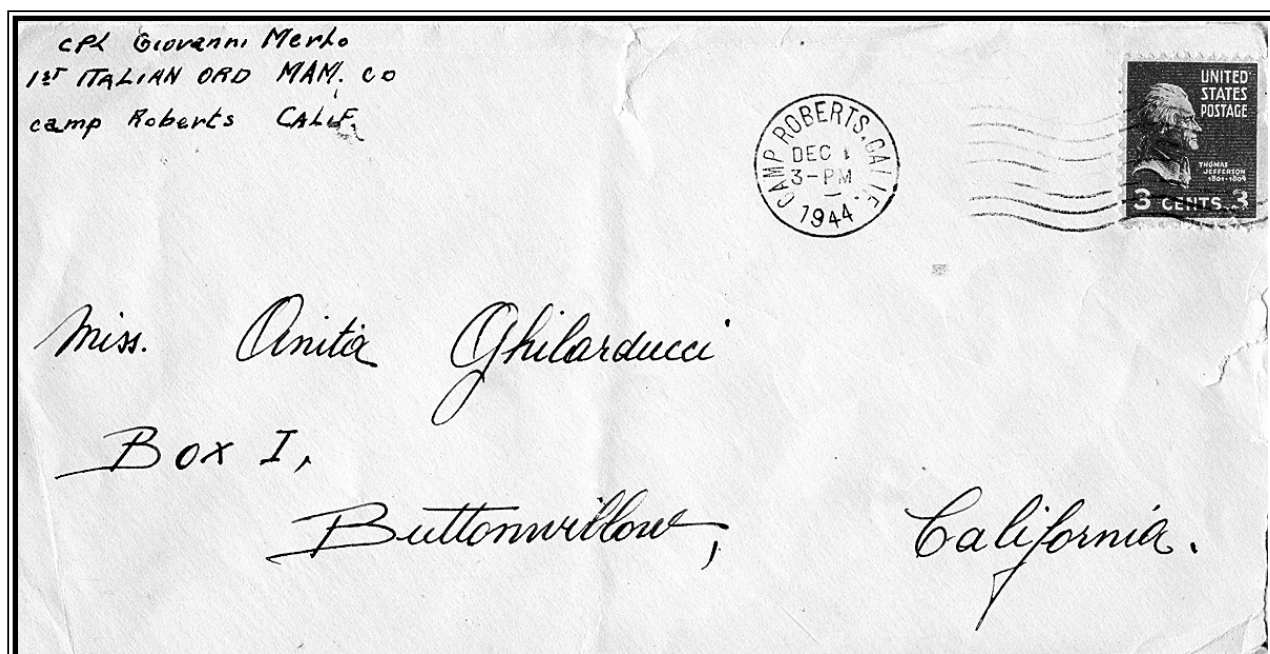 cpl Giovanni Merlo
1st ITALIAN ORD MAM. co
camp Roberts CALIF.
CAMP ROBERTS, CALIF.
DEC 1
3-PM
1944
UNITED
STATES
POSTAGE
THOMAS
JEFFERSON
1801-1809
3 CENTS 3
Miss. Anita Ghilarducci
Box I,
Buttonwillow, California.